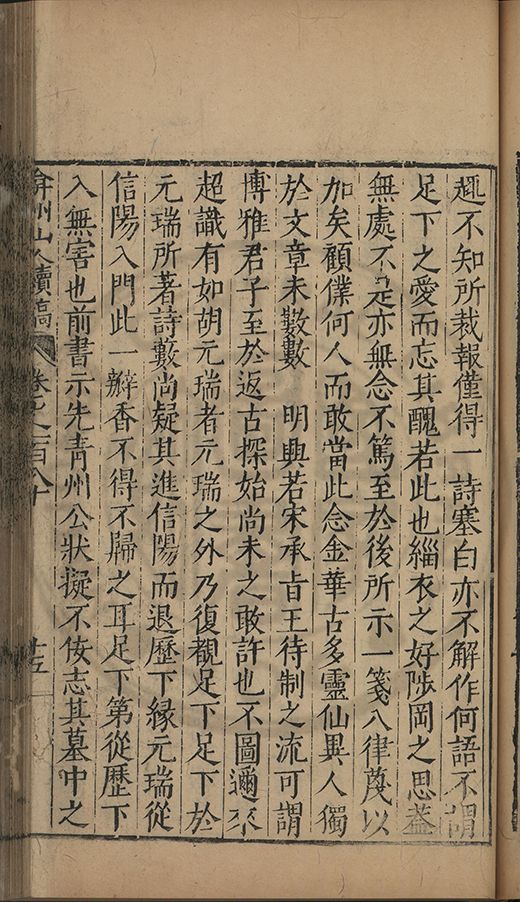 趣不知所裁報僅得一詩塞白亦不解作何語不謂
足下之愛而忘其醜若此也緇衣之好陟岡之思蓋
無處不是亦無念不篤至於後所示一箋八律蔑以
加矣顧僕何人而敢當此念金華古多靈仙異人獨
於文章未數數　明興若宋承旨王待制之流可謂
博雅君子至於返古探始尚未之敢許也不圖邇來
超識有如胡元瑞者元瑞之外乃復覩足下足下於
元瑞所著詩藪尚疑其進信陽而退歷下緣元瑞從
信陽入門此一瓣香不得不歸之耳足下第從歷下
入無害也前書示先青州公狀擬不佞志其墓中之
弇州山人續稿　卷之一百八十　十五